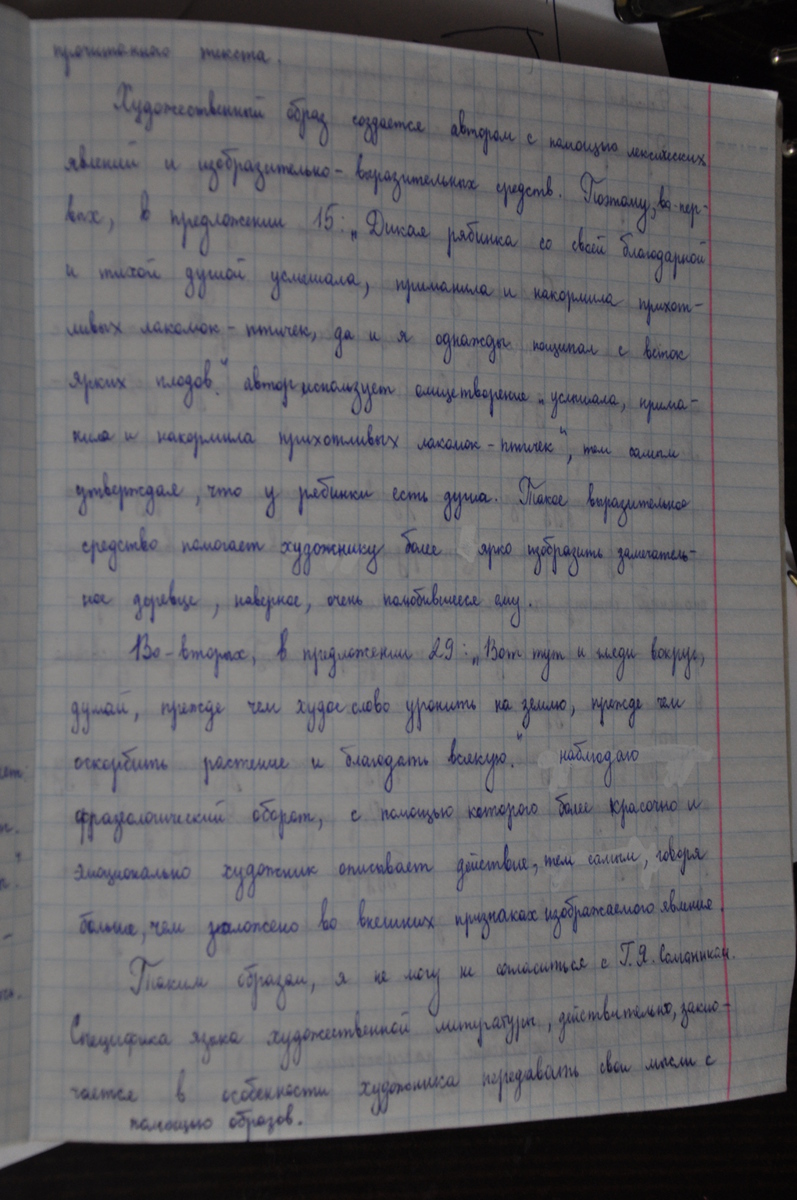 прочитанного текста.
Художественный образ создается автором с помощью лексических
явлений и изобразительно-выразительных средств. Поэтому, во-пер-
вых, в предложении 15: „Дикая рябинка со своей благодарной
и тихой душой услышала, приманила и накормила прихот-
ливых лакомок-птичек, да и я однажды пощипал с веток
ярких плодов." автор использует олицетворение „услышала, прима-
нила и накормила прихотливых лакомок-птичек", тем самым
утверждая, что у рябинки есть душа. Такое выразительное
средство помогает художнику более ярко изобразить замечатель-
ное деревце, наверное, очень полюбившееся ему.
Во-вторых, в предложении 29: „Вот тут и гляди вокруг,
думай, прежде чем худое слово уронить на землю, прежде чем
оскорбить растение и благодать всякую." наблюдаю
фразеологический оборот, с помощью которого более красочно и
эмоционально художник описывает действие, тем самым, говоря
больше, чем заложено во внешних признаках изображаемого явления.
Таким образом, я не могу не согласиться с Г.Я. Солгаником.
Специфика языка художественной литературы, действительно, заклю-
чается в особенности художника передавать свои мысли с
помощью образов.